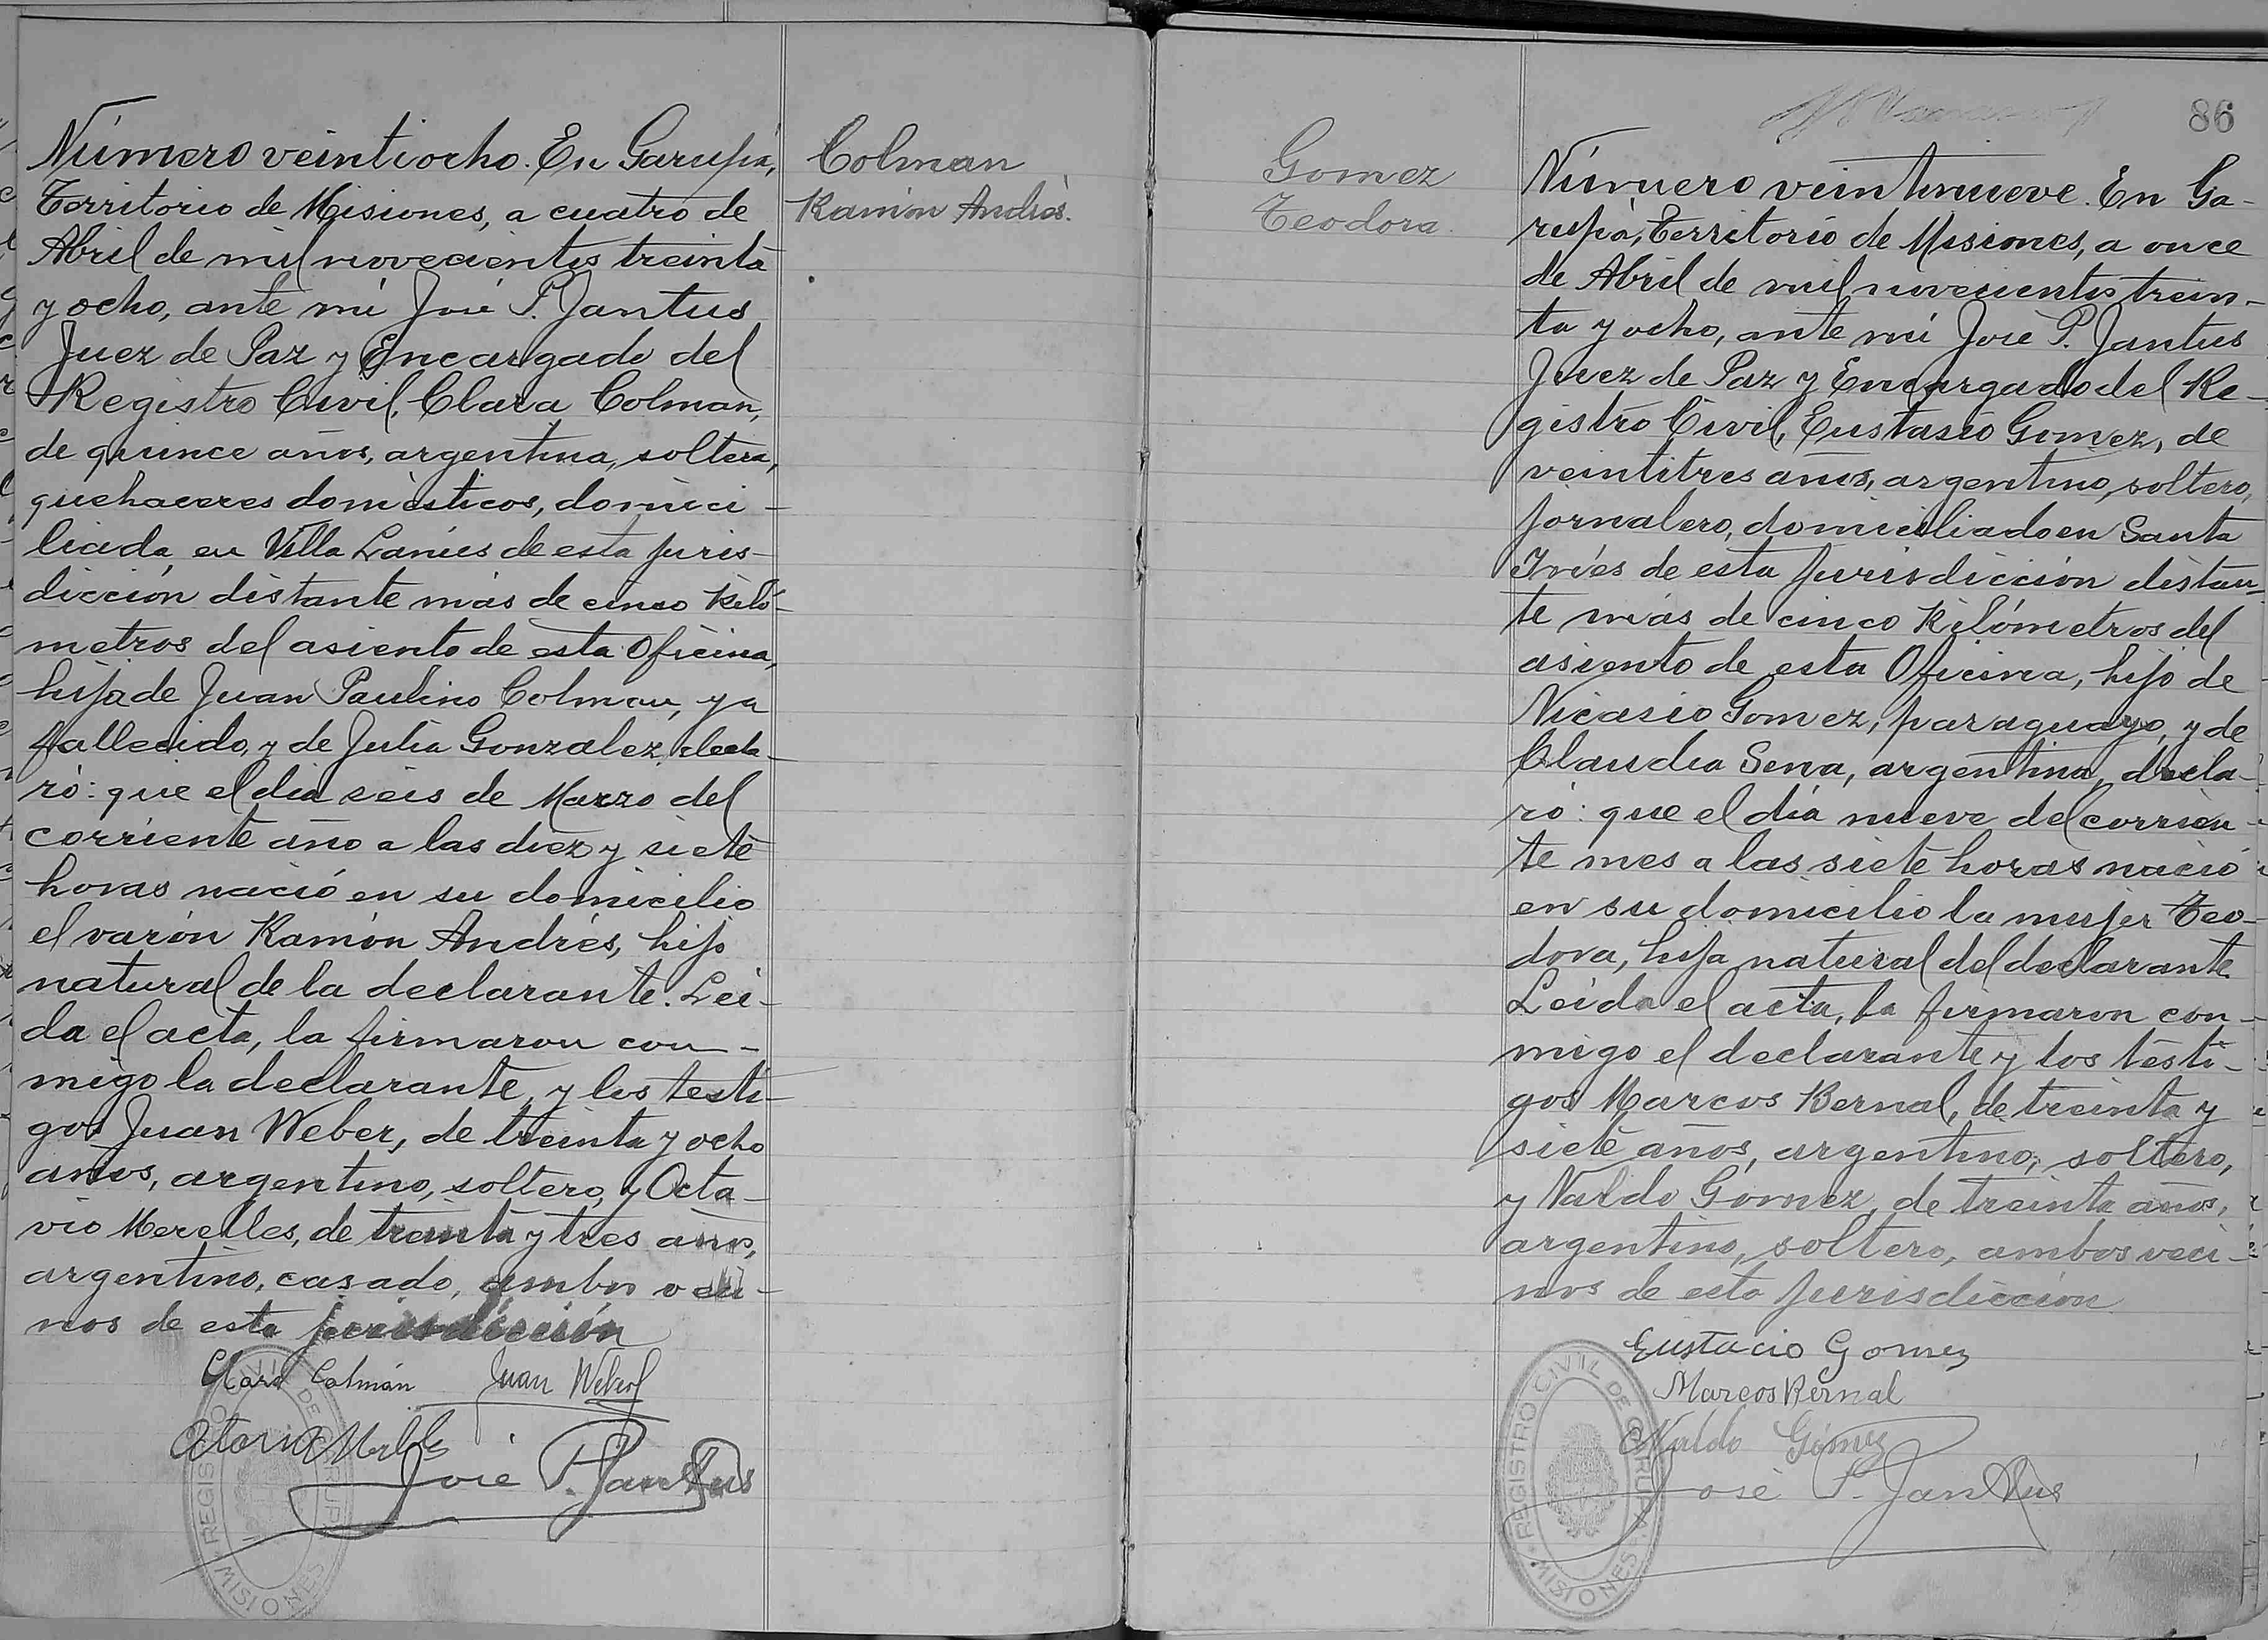 Número veintiocho. En Garupá,
Territorio de Misiones, a cuatro de
Abril de mil novecientos treinta
y ocho, ante mí José P. Jantus
Juez de Paz y Encargado del
Registro Civil, Clara Colman,
de quince años, argentina, soltera,
quehaceres domésticos, domici-
liada, en Villa Lanús de esta juris-
dicción distante más de cinco kiló-
metros del asiento de esta Oficina,
hija de Juan Paulino Colman, ya
fallecido, y de Julia Gonzalez, decla-
ró: que el día seis de Marzo del
corriente año a las diez y siete
horas nació en su domicilio
el varón Ramón Andrés, hijo
natural de la declarante. Leí-
da el acta, la firmaron con-
migo la declarante, y los testi-
gos Juan Weber, de treinta y ocho
años, argentino, soltero, y Octa-
vio Merelles, de treinta y tres años,
argentino, casado, ambos veci-
nos de esta jurisdicción
Clara Colmán Juan Weber
José P. Jantus
REGISTRO CIVIL DE GARUPA
MISIONES
Colman
Ramón Andrés.
Gomez
Teodora.
86
Número veintinueve. En Ga-
rupá, Territorio de Misiones, a once
de Abril de mil novecientos trein-
ta y ocho, ante mí José P. Jantus
Juez de Paz y Encargado del Re-
gistro Civil, Eustasio Gomez, de
veintitres años, argentino, soltero,
jornalero, domiciliado en Santa
Inés de esta jurisdicción distan-
te más de cinco Kilómetros del
asiento de esta Oficina, hijo de
Nicasio Gomez, paraguayo, y de
Claudia Sena, argentina, decla-
ró: que el día nueve del corrien-
te mes a las siete horas nació
en su domicilio la mujer Teo-
dora, hija natural del declarante
Leída el acta, la firmaron con-
migo el declarante y los testi-
gos Marcos Bernal, de treinta y
siete años, argentino, soltero,
y Naldo Gómez, de treinta años,
argentino, soltero, ambos veci-
nos de esta jurisdicción
Eustacio Gomez
Marcos Bernal
Naldo Gómez
José P. Jantus
REGISTRO CIVIL DE GARUPA
MISIONES